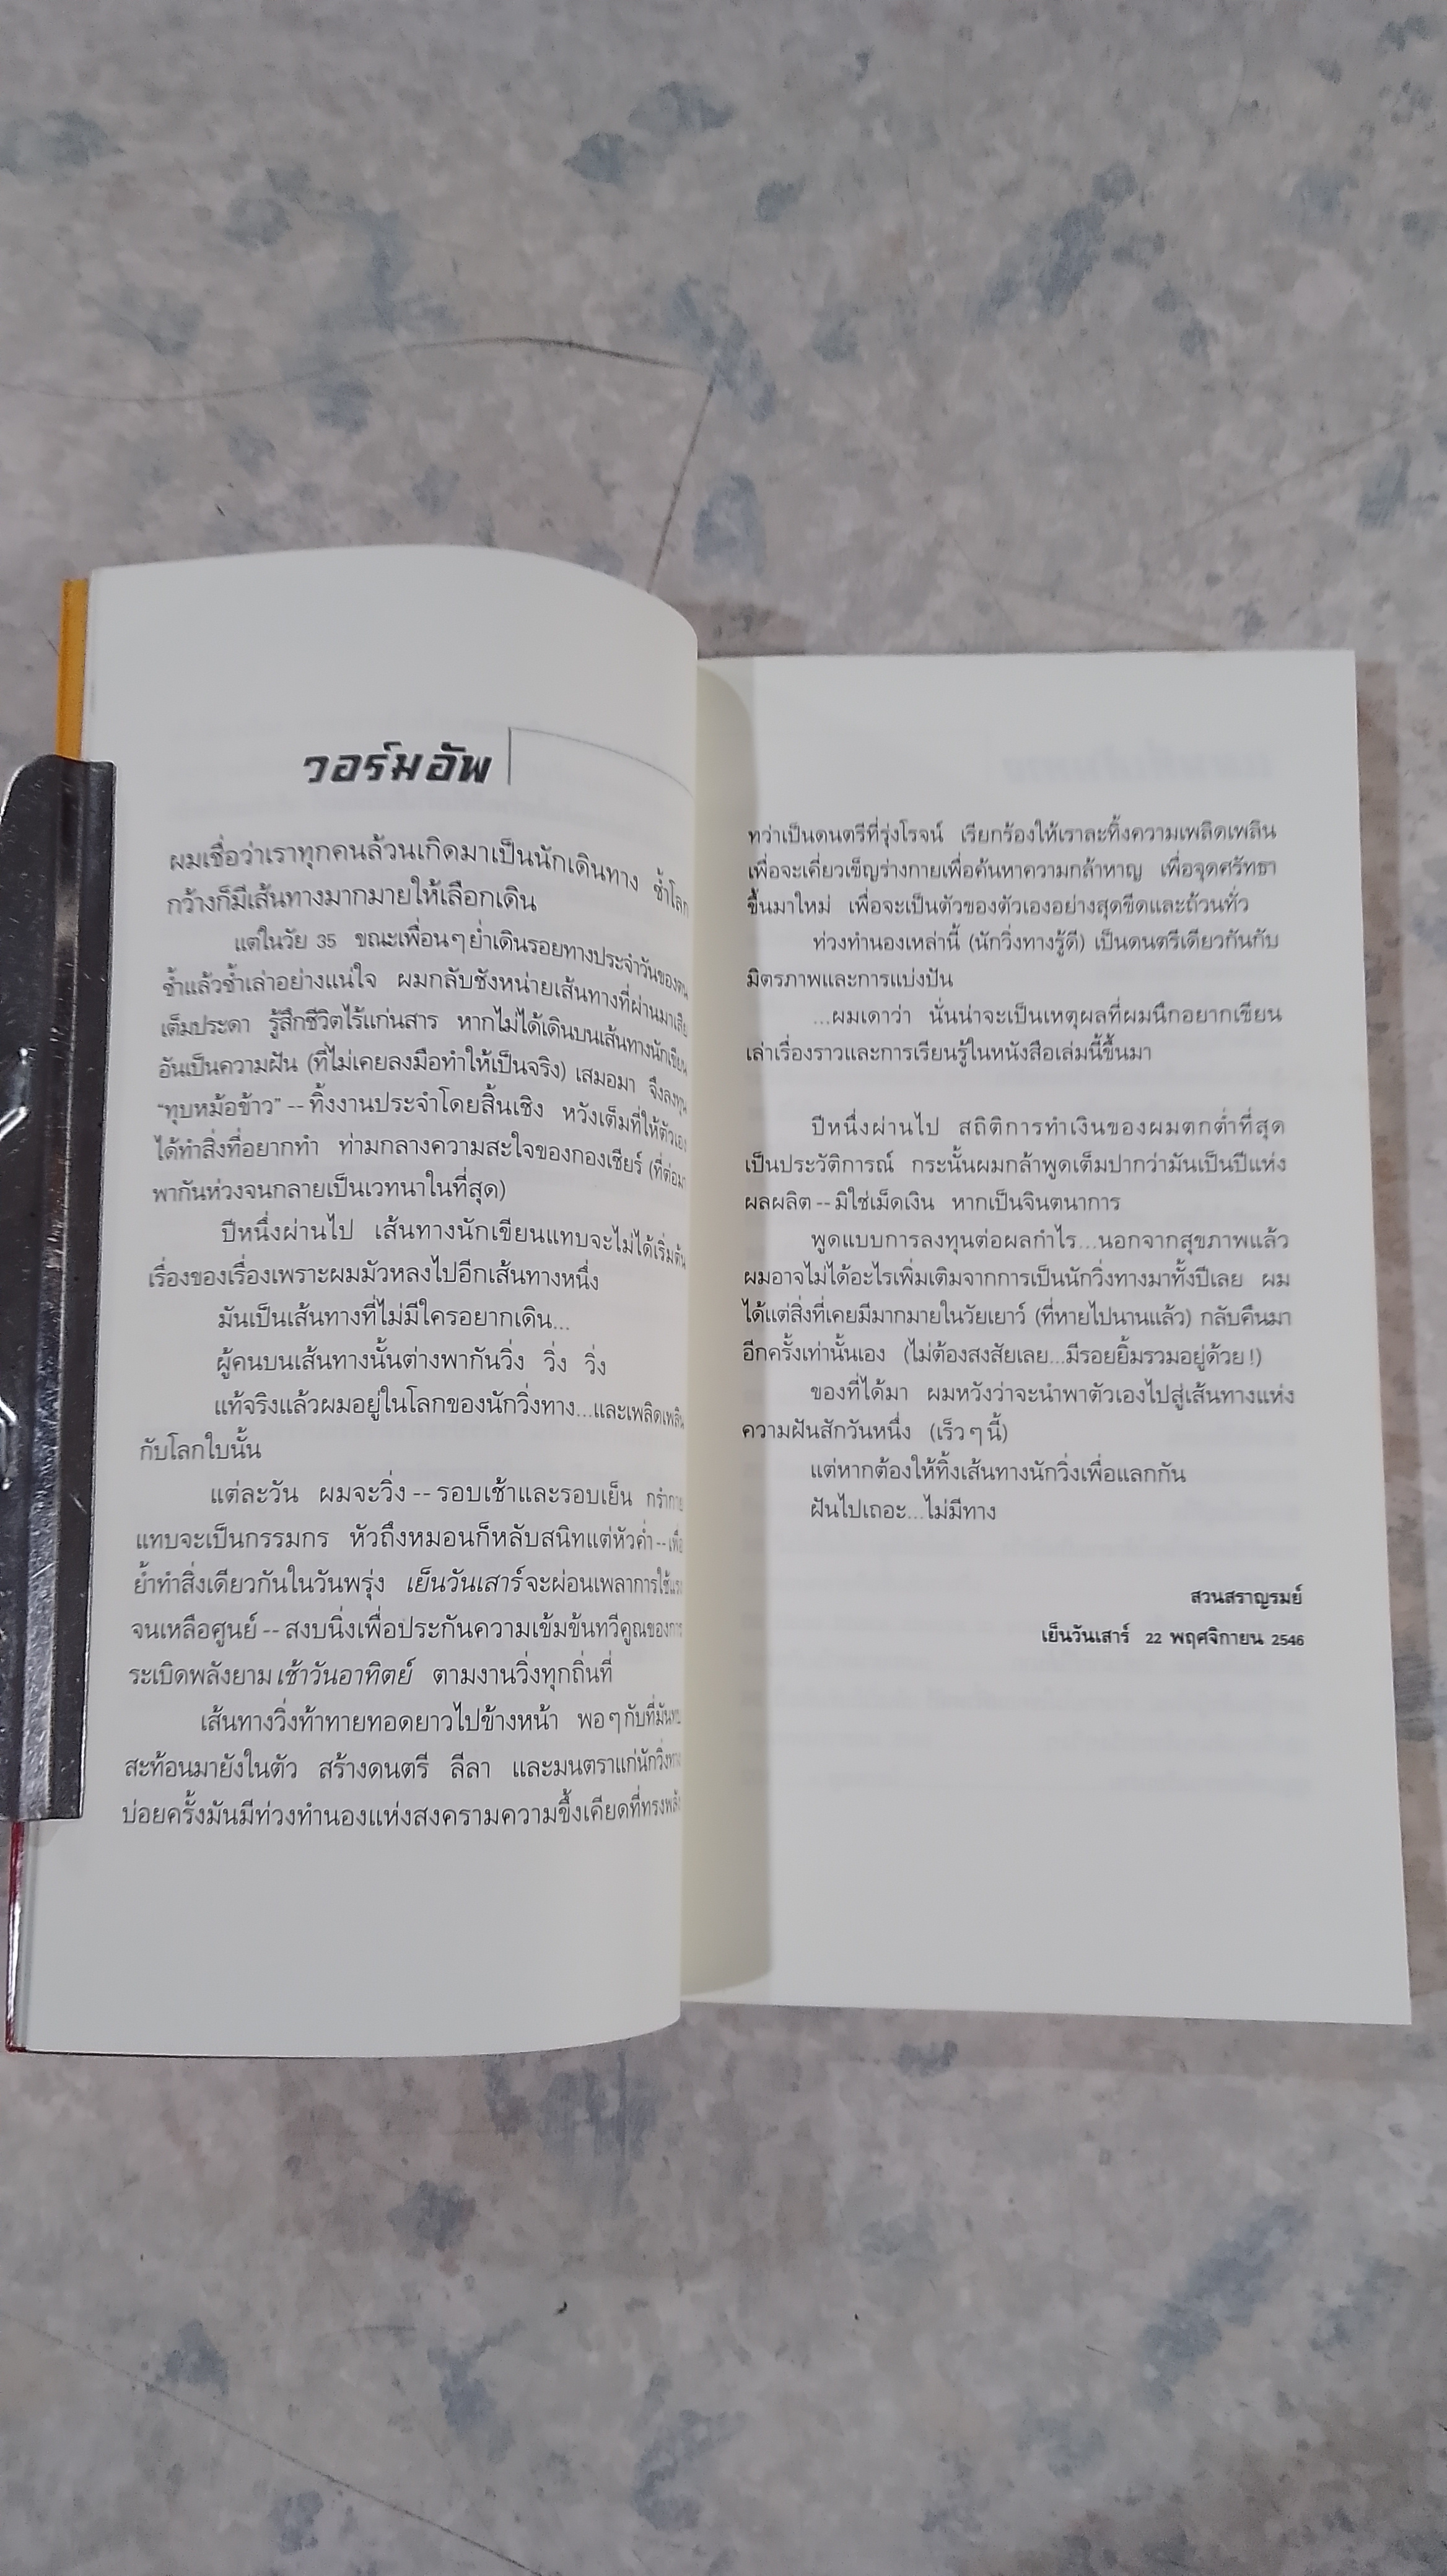 วอร์มอัพ
ผมเชื่อว่าเราทุกคนล้วนเกิดมาเป็นนักเดินทาง ซ้ำโลก
กว้างก็มีเส้นทางมากมายให้เลือกเดิน
แต่ในวัย 35 ขณะเพื่อนๆ ย่ำเดินรอยทางประจำวันของตน
ซ้ำแล้วซ้ำเล่าอย่างแน่ใจ ผมกลับชังหน่ายเส้นทางที่ผ่านมาเสีย
เต็มประดา รู้สึกชีวิตไร้แก่นสาร หากไม่ได้เดินบนเส้นทางนักเขียน
อันเป็นความฝัน (ที่ไม่เคยลงมือทำให้เป็นจริง) เสมอมา จึงลงทุน
"ทุบหม้อข้าว" -- ทิ้งงานประจำโดยสิ้นเชิง หวังเต็มที่ให้ตัวเอง
ได้ทำสิ่งที่อยากทำ ท่ามกลางความสะใจของกองเชียร์ (ที่ต่อมา
พากันห่วงจนกลายเป็นเวทนาในที่สุด)
ปีหนึ่งผ่านไป เส้นทางนักเขียนแทบจะไม่ได้เริ่มต้น
เรื่องของเรื่องเพราะผมมัวหลงไปอีกเส้นทางหนึ่ง
มันเป็นเส้นทางที่ไม่มีใครอยากเดิน...
ผู้คนบนเส้นทางนั้นต่างพากันวิ่ง วิ่ง วิ่ง
แท้จริงแล้วผมอยู่ในโลกของนักวิ่งทาง...และเพลิดเพลิน
กับโลกใบนั้น
แต่ละวัน ผมจะวิ่ง -- รอบเช้าและรอบเย็น กรำกาย
แทบจะเป็นกรรมกร หัวถึงหมอนก็หลับสนิทแต่หัวค่ำ -- เพื่อ
ย้ำทำสิ่งเดียวกันในวันพรุ่ง เย็นวันเสาร์จะผ่อนเพลาการใช้แรง
จนเหลือศูนย์ -- สงบนิ่งเพื่อประกันความเข้มข้นทวีคูณของการ
ระเบิดพลังยามเช้าวันอาทิตย์ ตามงานวิ่งทุกถิ่นที่
เส้นทางวิ่งท้าทายทอดยาวไปข้างหน้า พอๆ กับที่มัน
สะท้อนมายังในตัว สร้างดนตรี ลีลา และมนตราแก่นักวิ่งทาง
บ่อยครั้งมันมีท่วงทำนองแห่งสงครามความขึ้งเคียดที่ทรงพลัง
ทว่าเป็นดนตรีที่รุ่งโรจน์ เรียกร้องให้เราละทิ้งความเพลิดเพลิน
เพื่อจะเคี่ยวเข็ญร่างกายเพื่อค้นหาความกล้าหาญ เพื่อจุดศรัทธา
ขึ้นมาใหม่ เพื่อจะเป็นตัวของตัวเองอย่างสุดขีดและถ้วนทั่ว
ท่วงทำนองเหล่านี้ (นักวิ่งทางรู้ดี) เป็นดนตรีเดียวกันกับ
มิตรภาพและการแบ่งปัน
...ผมเดาว่า นั่นน่าจะเป็นเหตุผลที่ผมนึกอยากเขียน
เล่าเรื่องราวและการเรียนรู้ในหนังสือเล่มนี้ขึ้นมา
ปีหนึ่งผ่านไป สถิติการทำเงินของผมตกต่ำที่สุด
เป็นประวัติการณ์ กระนั้นผมกล้าพูดเต็มปากว่ามันเป็นปีแห่ง
ผลผลิต -- มิใช่เม็ดเงิน หากเป็นจินตนาการ
พูดแบบการลงทุนต่อผลกำไร...นอกจากสุขภาพแล้ว
ผมอาจไม่ได้อะไรเพิ่มเติมจากการเป็นนักวิ่งทางมาทั้งปีเลย ผม
ได้แต่สิ่งที่เคยมีมากมายในวัยเยาว์ (ที่หายไปนานแล้ว) กลับคืนมา
อีกครั้งเท่านั้นเอง (ไม่ต้องสงสัยเลย...มีรอยยิ้มรวมอยู่ด้วย !)
ของที่ได้มา ผมหวังว่าจะนำพาตัวเองไปสู่เส้นทางแห่ง
ความฝันสักวันหนึ่ง (เร็วๆ นี้)
แต่หากต้องให้ทิ้งเส้นทางนักวิ่งเพื่อแลกกัน
ฝันไปเถอะ...ไม่มีทาง
สวนสราญรมย์
เย็นวันเสาร์ 22 พฤศจิกายน 2546